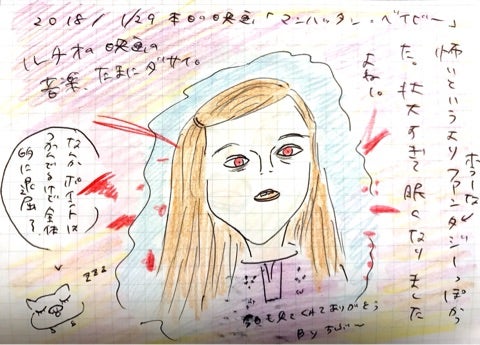 2018/1/29 本日の映画「マンハッタン・ベイビー」
ルチオの映画の
音楽、たまにダサイ。
怖いというよりファンタジーっぽかっ
た。壮大すぎて眠くなりました
よねー。
ホラーな
なんかポイントは
つかんでるけど全体
的に退屈
zzz
今日も見てくれてありがとう
By